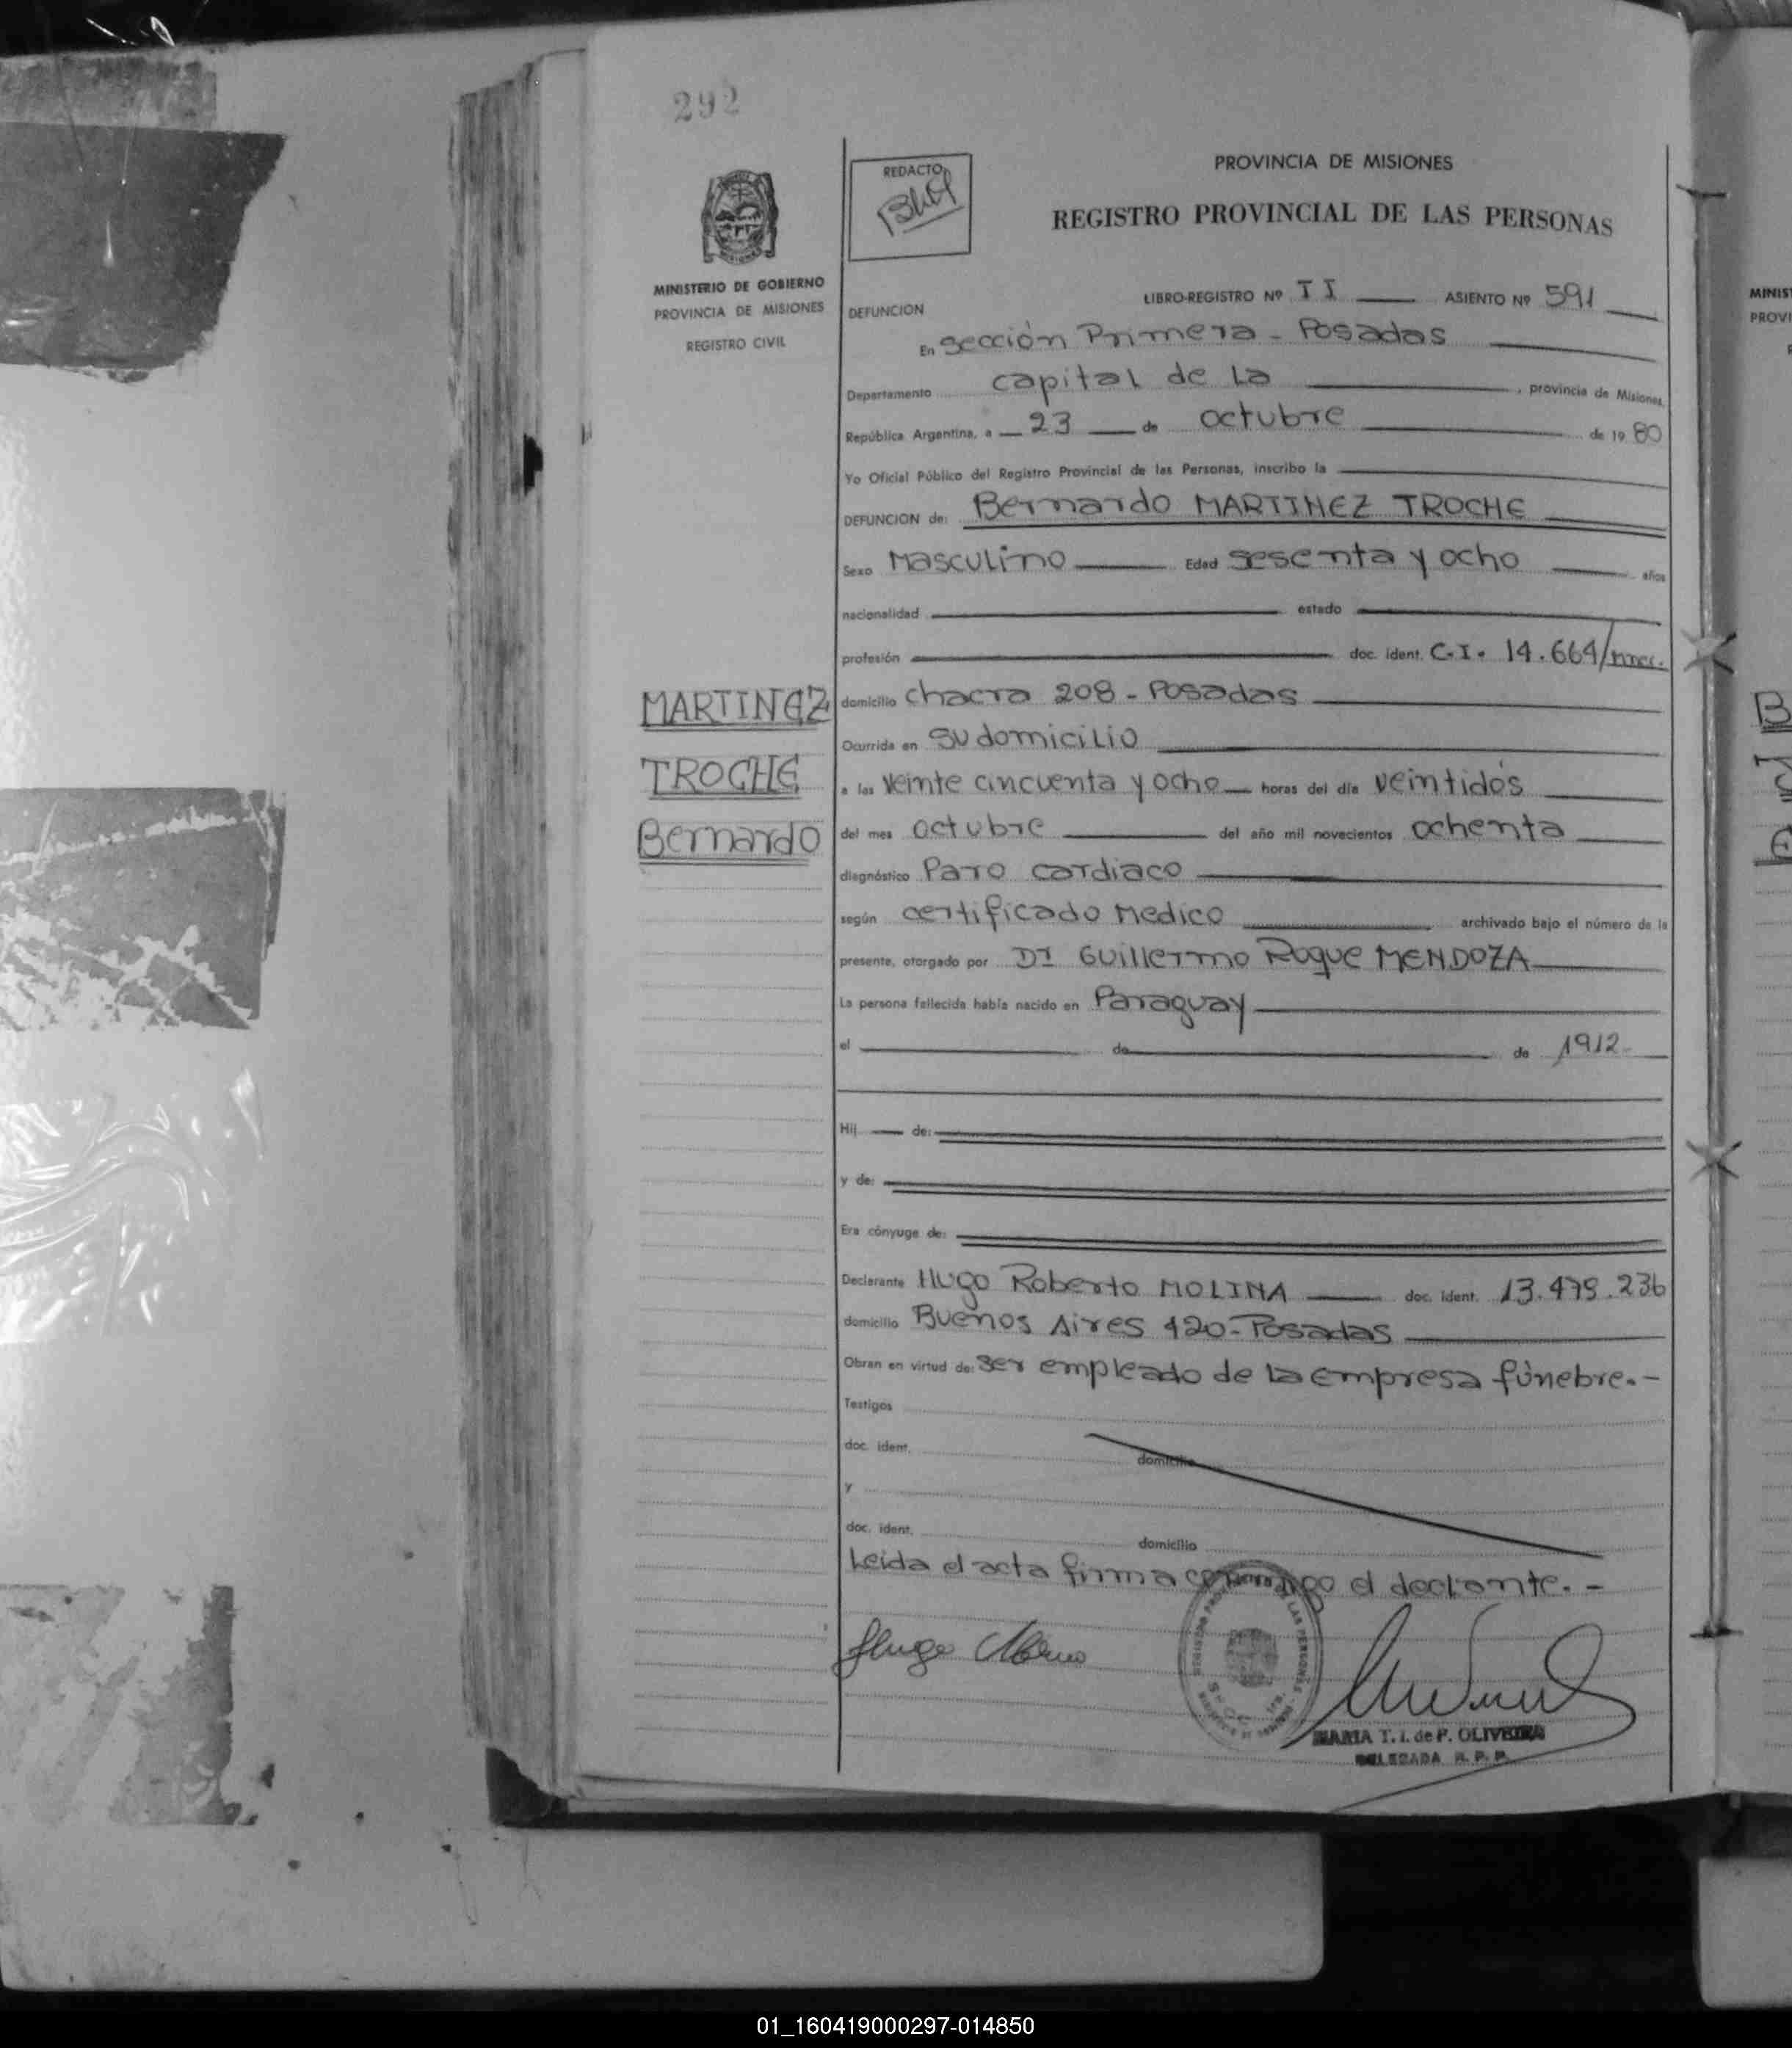 292
PROVINCIA DE MISIONES
REDACTO
REGISTRO PROVINCIAL DE LAS PERSONAS
MINISTERIO DE GOBIERNO
PROVINCIA DE MISIONES
REGISTRO CIVIL
LIBRO-REGISTRO Nº II ASIENTO Nº 591
DEFUNCION
En sección Primera - Posadas
Departamento capital de la , provincia de Misiones,
República Argentina, a 23 de octubre de 19 80
Yo Oficial Público del Registro Provincial de las Personas, inscribo la
DEFUNCION de: Bernardo MARTINEZ TROCHE
Sexo Masculino Edad sesenta y ocho años
nacionalidad estado
profesión doc. ident. C.I. 14.664/mnes.
MARTINEZ
TROCHE
Bernardo
domicilio chacra 208 - Posadas
Ocurrida en su domicilio
a las veinte cincuenta y ocho horas del día veintidós
del mes octubre del año mil novecientos ochenta
diagnóstico Paro cardiaco
según certificado Medico archivado bajo el número de la
presente, otorgado por Dr Guillermo Roque MENDOZA
La persona fallecida había nacido en Paraguay
el de de 1912
Hij de:
y de:
Era cónyuge de:
Declarante Hugo Roberto MOLINA doc. ident. 13.475.236
domicilio Buenos Aires 420 - Posadas
Obran en virtud de: ser empleado de la empresa fúnebre.-
Testigos
doc. ident. domicilio
y
doc. ident. domicilio
Leida el acta firma conmigo el declante.-
MARIA T. I. de P. OLIVEIRA
DELEGADA R. P. P.
MINIST
PROVI
01_160419000297-014850